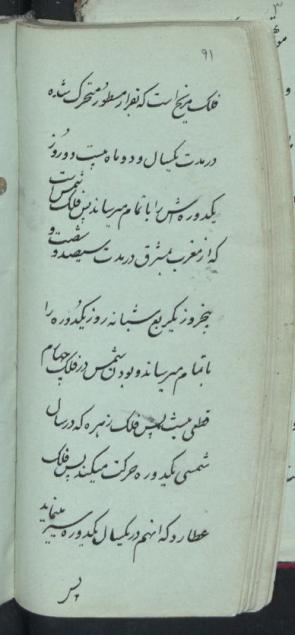 ۹۱
فلک مریخ است که نفر از مسطور متحرک شده
در مدت یکسال و دو ماه بیست و دو روز
یکدوره‌اش را باتمام میرساند پس فلک شمس است
که از مغرب بمشرق در مدت سیصد و شصت و
پنجروز یکربع شبانه روز یکدوره را
باتمام میرساند و بودن شمس در فلک چهارم
قطعی نیست پس فلک زهره که در سال
شمسی یکدوره حرکت میکند پس فلک
عطارد که انهم در یکسال یکدوره سیر مینماید
پس